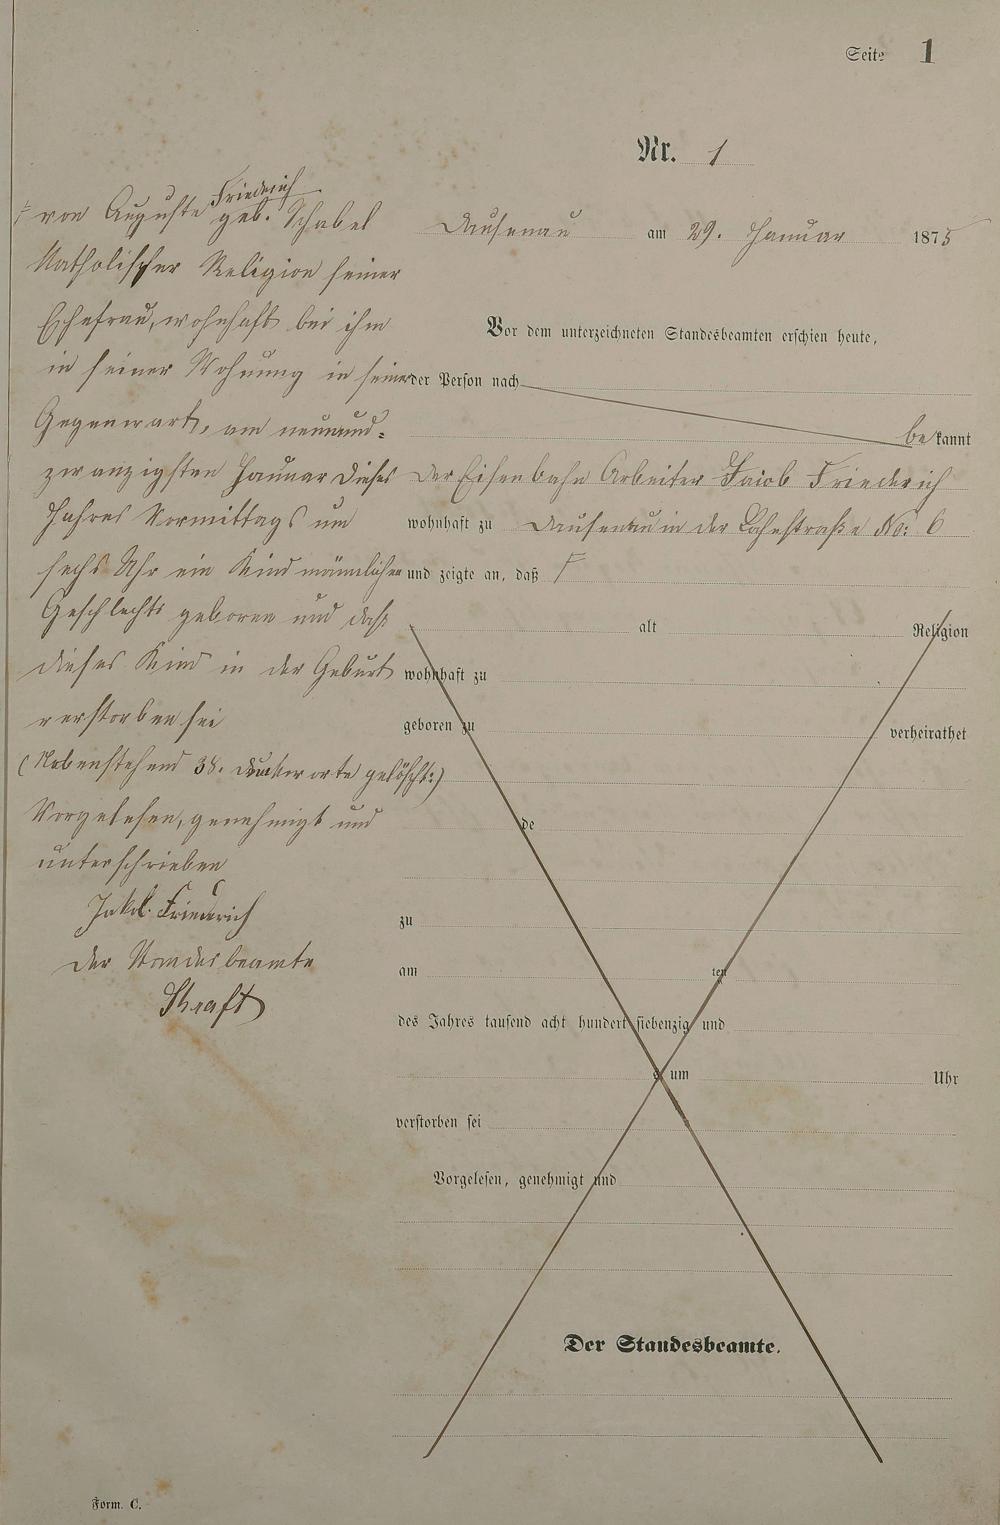 Seite 1
Nr. 1
Dausenau am 29. Januar 1875
Vor dem unterzeichneten Standesbeamten erschien heute,
der Person nach
bekannt
der Eisenbahn Arbeiter Jacob Friederich
wohnhaft zu Dausenau in der Lahnstraße No: 6
und zeigte an, daß F
alt Religion
wohnhaft zu
geboren zu verheirathet
de
zu
am ten
des Jahres tausend acht hundert siebenzig und
s um Uhr
verstorben sei
Vorgelesen, genehmigt und
Der Standesbeamte.
Friederich
F von Auguste geb. Schabel
Katholischer Religion seiner
Ehefrau, wohnhaft bei ihm
in seiner Wohnung in seiner
Gegenwart, am neunund-
zwanzigsten Januar dieses
Jahres Vormittags um
sechs Uhr ein Kind männlichen
Geschlechts geboren und daß
dieses Kind in der Geburt
verstorben sei
(Nebenstehend 38. Druckworte gelöscht:)
Vorgelesen, genehmigt und
unterschrieben
Jakob Friederich
Der Standesbeamte
Kraft
Form. C.